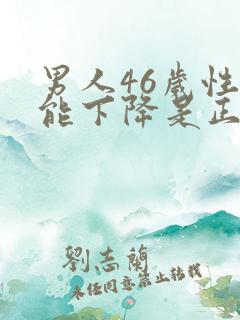 男人46歲性
能下降是正
劉志蘭
未经同意禁止转载